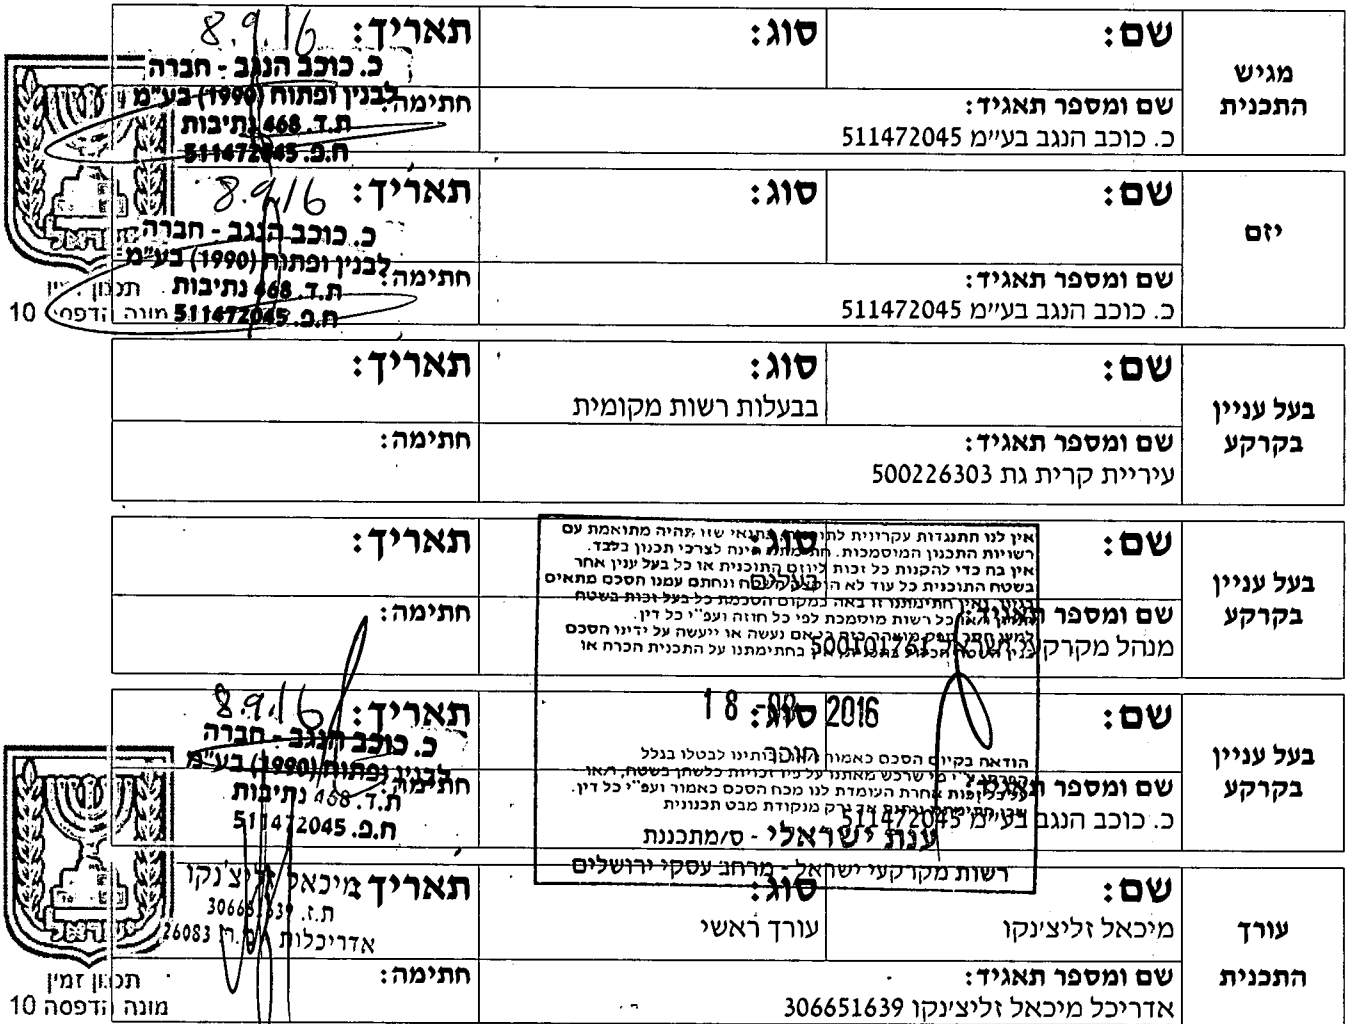 מגיש התכנית
שם:
סוג:
תאריך: 8.9.16
שם ומספר תאגיד:
כ. כוכב הנגב בע״מ 511472045
חתימה:
כ. כוכב הנגב - חברה
לבנין ופתוח (1990) בע"מ
ת.ד. 468 נתיבות
ח.פ. 511472045
יזם
שם:
סוג:
תאריך: 8.9.16
שם ומספר תאגיד:
כ. כוכב הנגב בע״מ 511472045
חתימה:
כ. כוכב הנגב - חברה
לבנין ופתוח (1990) בע"מ
ת.ד. 468 נתיבות
ח.פ. 511472045
תכנון זמין
מונה הדפסה 10
בעל עניין בקרקע
שם:
סוג:
בבעלות רשות מקומית
תאריך:
שם ומספר תאגיד:
עיריית קרית גת 500226303
חתימה:
בעל עניין בקרקע
סוג:
תאריך:
שם ומספר תאגיד:
מנהל מקרקעי ישראל 500101761
חתימה:
אין לנו התנגדות עקרונית בתנאי שזו תהיה מתואמת עם
רשויות התכנון המוסמכות. חתימתנו הינה לצרכי תכנון בלבד.
אין בה כדי להקנות כל זכות ליוזם התוכנית או כל בעל ענין אחר
בשטח התוכנית כל עוד לא הוקצה השטח ונחתם עמנו הסכם מתאים
חתימתנו זו באה במקום הסכמת כל בעל זכות בשטח
כל רשות מוסמכת לפי כל חוזה ועפ"י כל דין.
אם נעשה או ייעשה על ידינו הסכם
אין בחתימתנו על התכנית הכרח או
18 -09- 2016
הודאה בקיום הסכם כאמור לבטלו בגלל
מי שרכש מאתנו על פיו זכויות כלשהן בשטח, ו/או
אחרת העומדת לנו מכח הסכם כאמור ועפ"י כל דין.
מנקודת מבט תכנונית
ענת ישראלי - ס/מתכננת
רשות מקרקעי ישראל - מרחב עסקי ירושלים
בעל עניין בקרקע
שם:
סוג:
חוכר
תאריך: 8.9.16
שם ומספר תאגיד:
כ. כוכב הנגב בע״מ 511472045
חתימה:
כ. כוכב הנגב - חברה
לבנין ופתוח (1990) בע"מ
ת.ד. 468 נתיבות
ח.פ. 511472045
עורך התכנית
שם:
מיכאל זליצ׳נקו
סוג:
עורך ראשי
תאריך:
מיכאל זליצ'נקו
ת.ז. 306651639
אדריכלות 26083
שם ומספר תאגיד:
אדריכל מיכאל זליצ׳נקו 306651639
חתימה:
תכנון זמין
מונה הדפסה 10